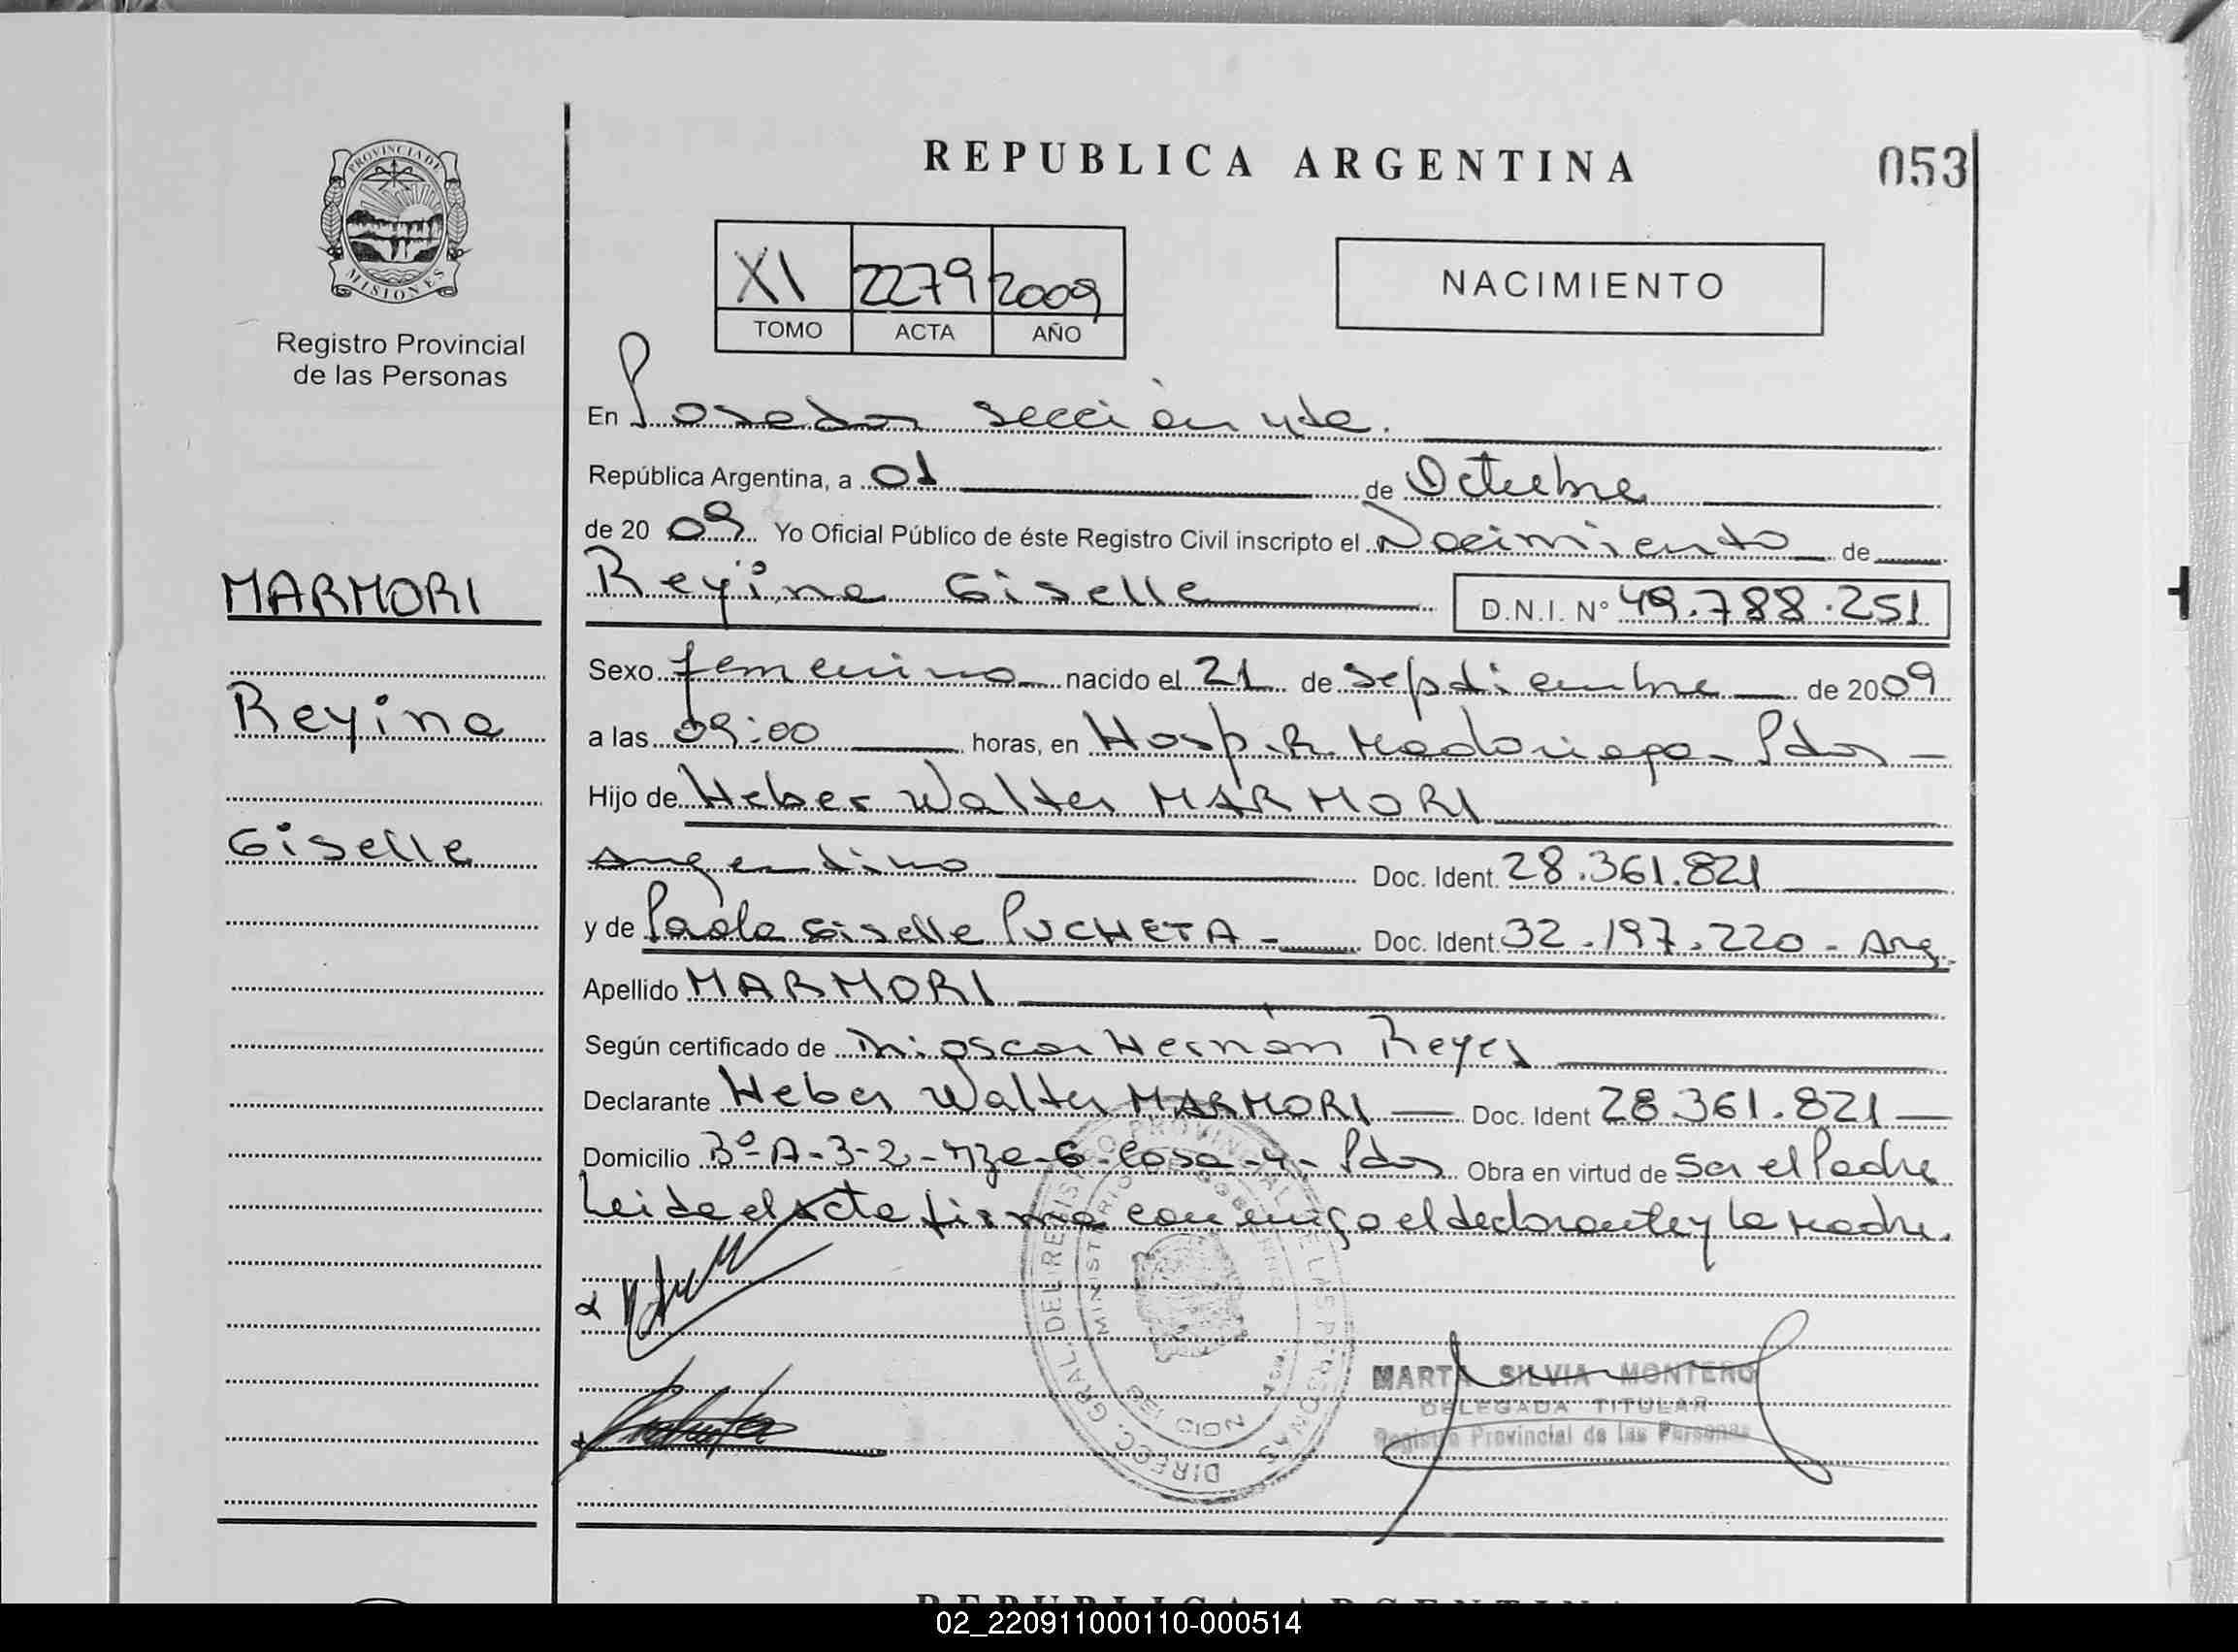 REPUBLICA ARGENTINA
053
PROVINCIA DE
MISIONES
Registro Provincial
de las Personas
XI 2279 2009
TOMO ACTA AÑO
NACIMIENTO
En Posadas sección 4ta.
República Argentina, a 01 de Octubre
de 2009 Yo Oficial Público de éste Registro Civil inscripto el Nacimiento de
MARMORI
Reyina Giselle D.N.I. Nº 49.788.251
Reyina
Giselle
Sexo femenino nacido el 21 de septiembre de 2009
a las 09:00 horas, en Hosp. R. Madariaga - Pdas -
Hijo de Heber Walter MARMORI
Argentino Doc. Ident. 28.361.821
y de Paola Giselle PUCHETA - Doc. Ident. 32.197.220 - Arg.
Apellido MARMORI
Según certificado de Oscar Hernán Reyes
Declarante Heber Walter MARMORI Doc. Ident 28.361.821
Domicilio Bº A-3-2-Mza-6-Casa-4-Pdas Obra en virtud de Ser el Padre
Leida el acta firma conmigo el declarante y la Madre.
DIRECC. GRAL. DEL REGISTRO PROVINCIAL DE LAS PERSONAS
MINISTERIO DE GOBIERNO
MARTA SILVIA MONTERO
DELEGADA TITULAR
Registro Provincial de las Personas
REPUBLICA ARGENTINA
02_220911000110-000514